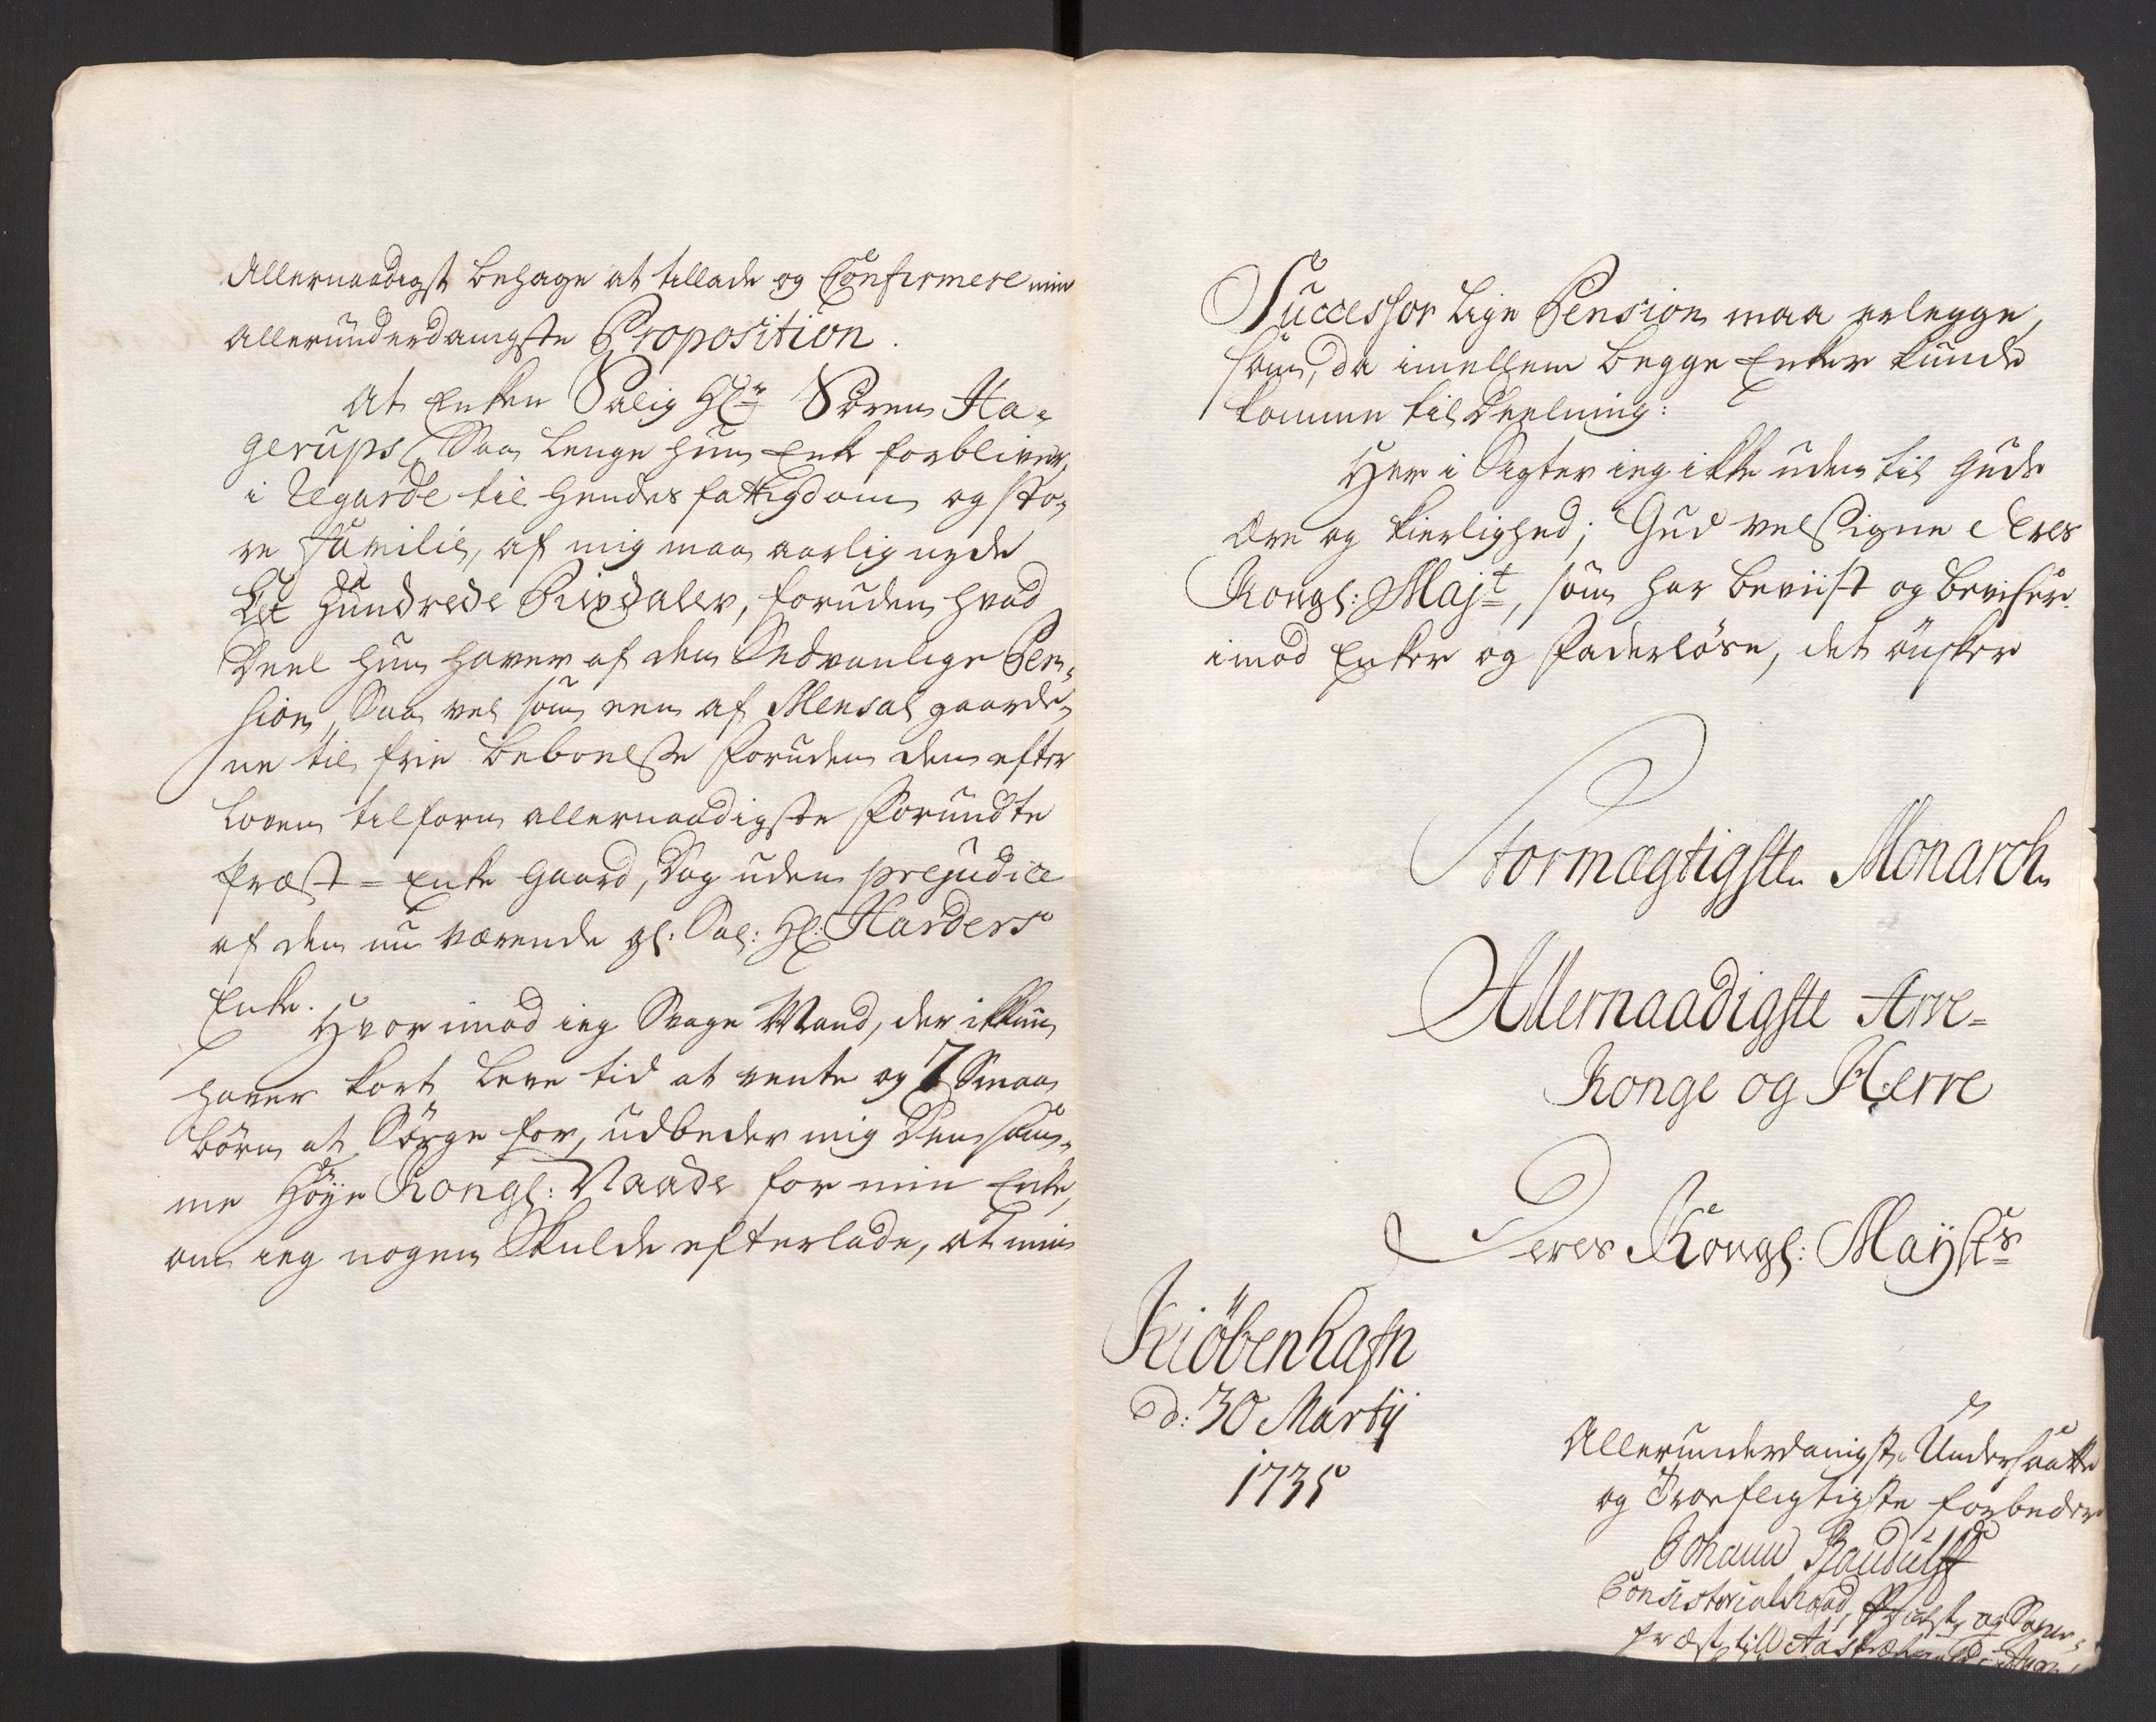 Allernaadigst behage at tillade og Confirmere min
allerunderdanigste Proposition.
At Enken Salig Hr Sören Ha-
gerups, Saa lenge hun Enke forbliver,
i Regarde til hendes fattigdom og sto-
re Familie, af mig maa aarlig nyde
Et Hundrede Rixdaler, foruden hvad
Deel hun haver af den Sedvanlige Pen-
sion, Saa vel som een af Mensal gaarde-
ne til frie beboelse foruden den efter
Loven tilforn allernaadigste forundte
Præst-Enke Gaard, Dog uden prejudice
af den nu værende gl: Sal: Hr: Harders
Enke.
Hvor imod ieg Svage Mand, der ikkun
haver kort leve tid at vente og 7 Smaa
börn at Sörge for, udbeder mig den sam-
me Höye Kongl: Naade for min Enke,
om ieg nogen Skulde efterlade, at min
Successor lige Pension maa erlegge,
som da imellem begge Enker kunde
komme til Deelning:
Her i Sigter ieg ikke uden til Guds
Ære og kierlighed; Gud velsigne Deres
Kongl: Majt, som har beviist og beviser
imod Enker og Faderlöse, det önsker
Stormægtigste Monarch
Allernaadigste Arve-
Konge og Herre
Deres Kongl: Mayts
Kiöbenhafn
d: 30 Martij
1735
Allerunderdanigste Undersaatte
og Troepligtigste forbeder
Johann Randulff
Consistorialraad, Profst og Sogne-
præst till